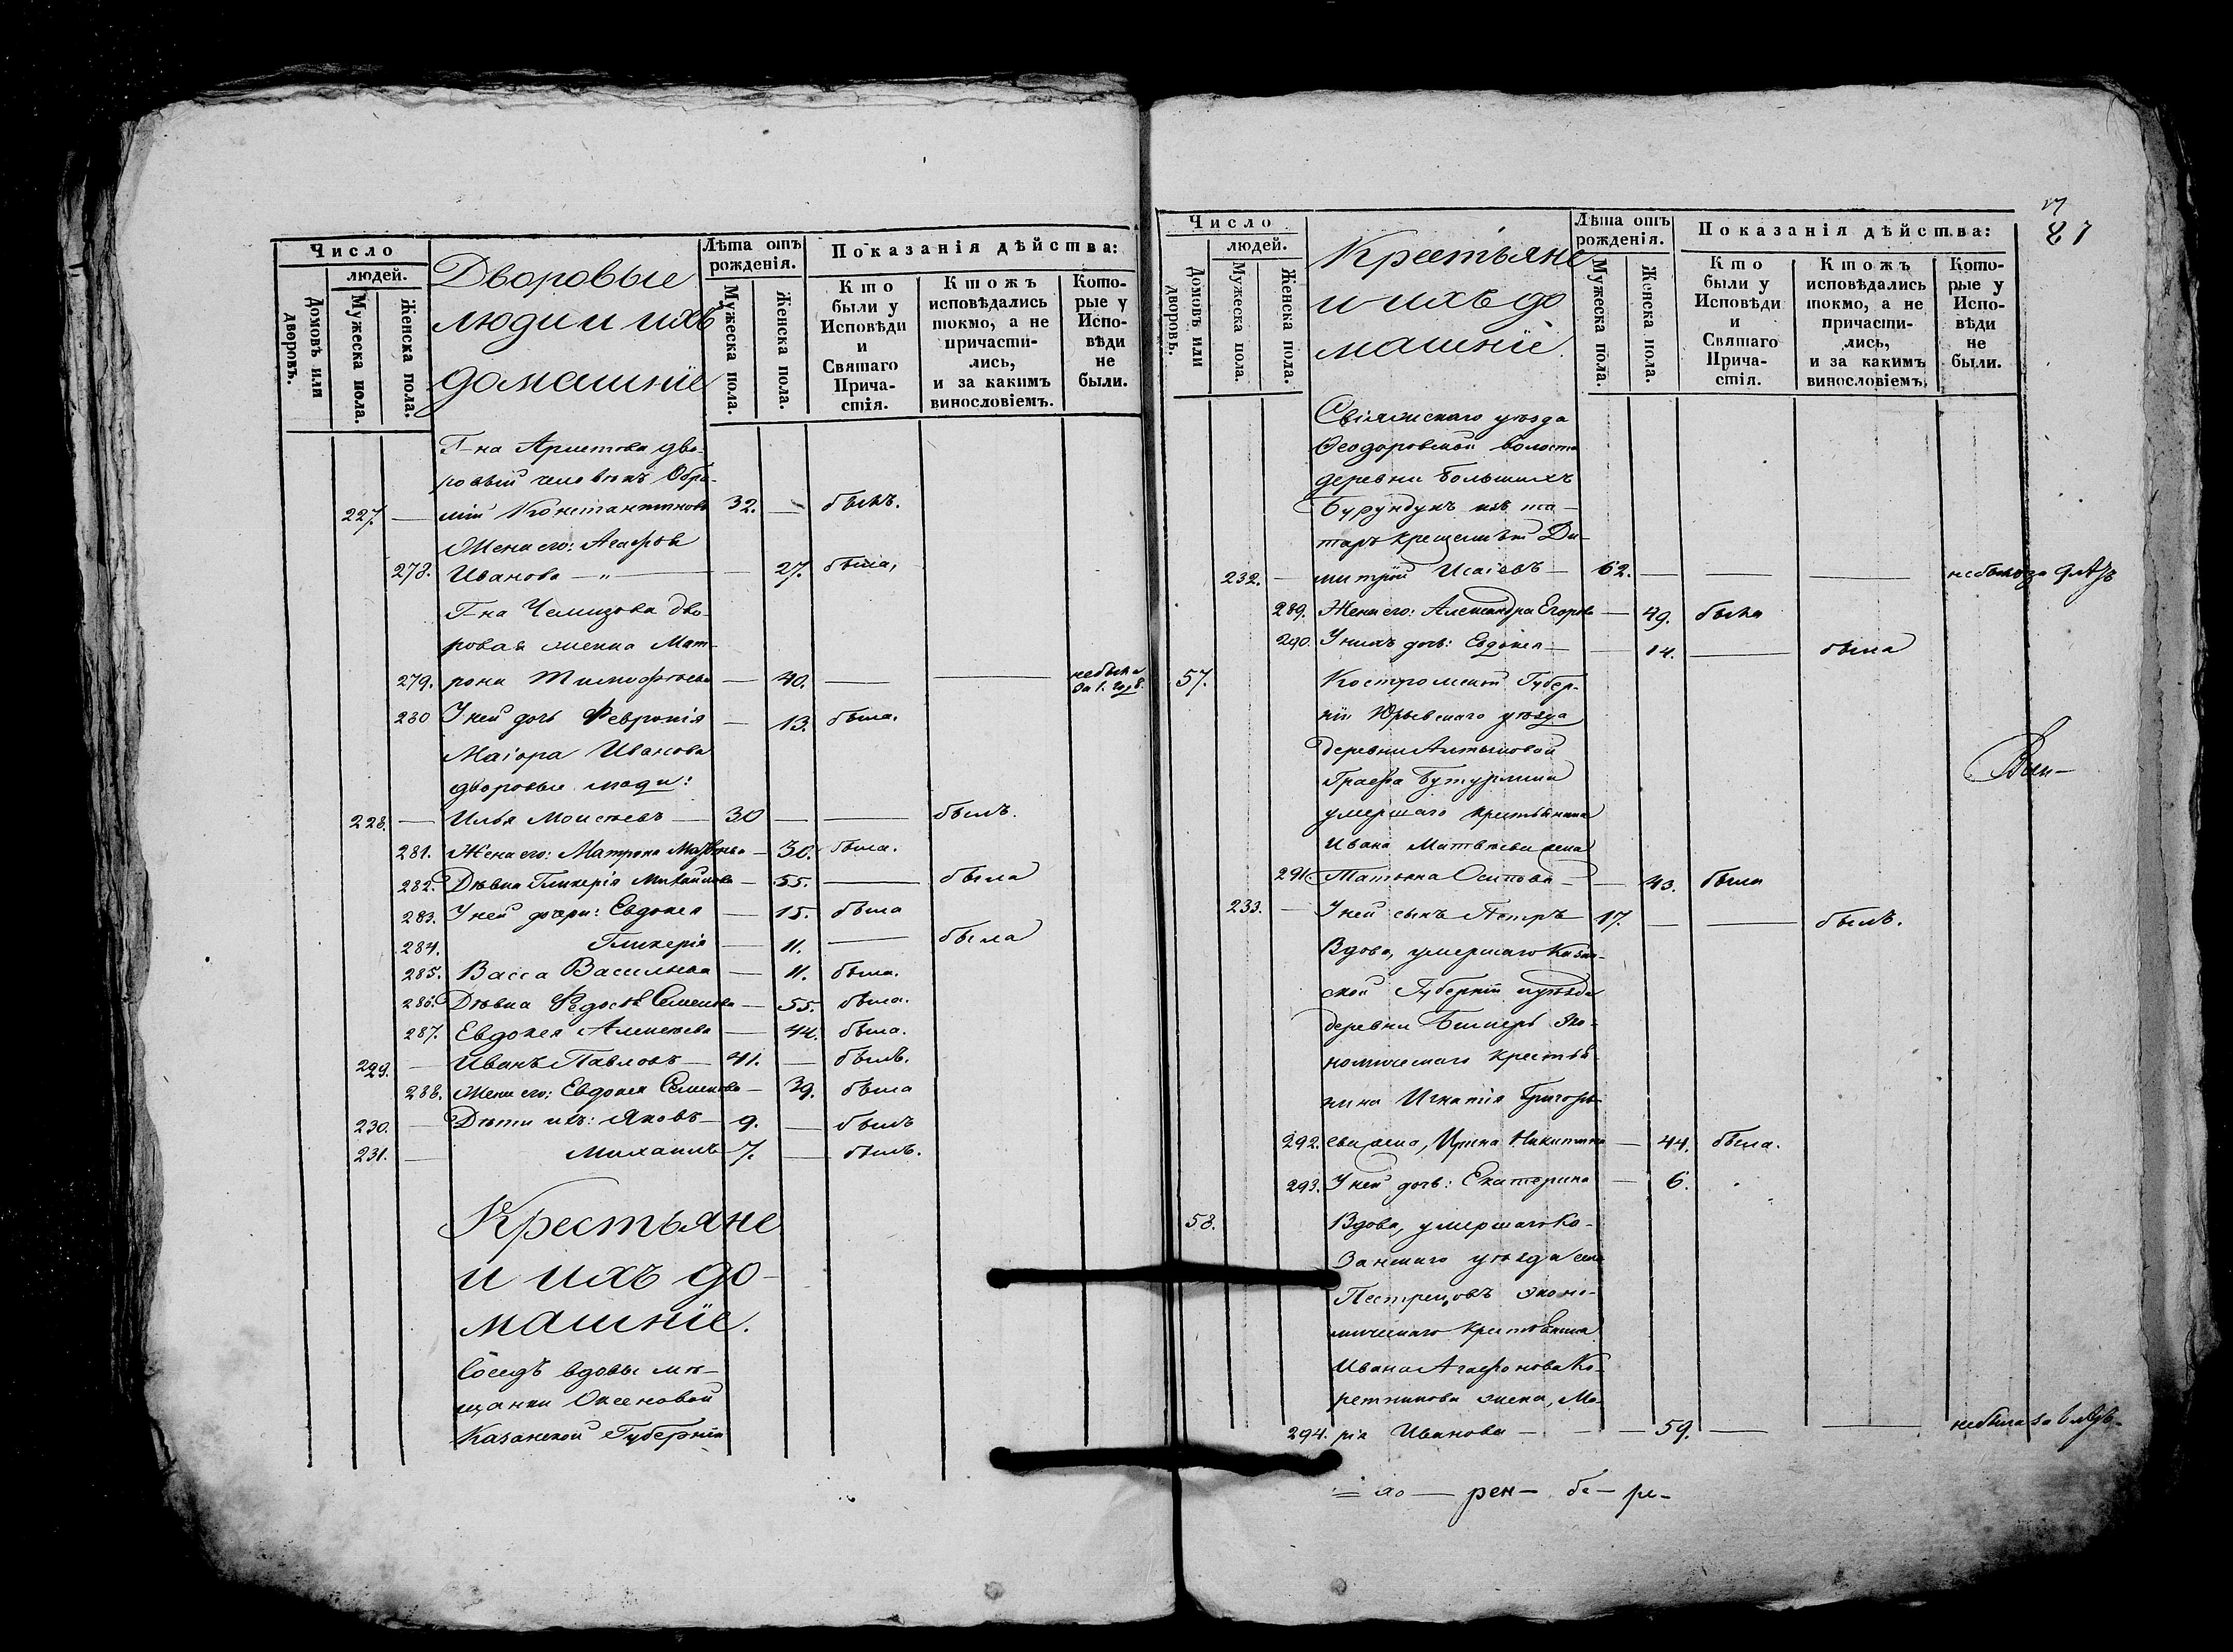 Число
людей.
Домовъ или дворовъ.
Мужеска пола.
Женска пола.
Дворовые
люди и ихъ
домашніе
Лѣта отъ рожденія.
Мужеска пола.
Женска пола.
Показанія дѣйства:
Кто были у Исповѣди и Святаго Причастія.
Ктожъ исповѣдались токмо, а не причастились, и за какимъ винословіемъ.
Которые у Исповѣди не были.
Г-на Аристова дво-
ровый человѣкъ
227. — Константиновъ 32. — былъ.
Жена его: Агафья
278. Иванова — " — 27. была,
Г-на дво-
ровая женка Мат-
279. рона Тимофѣева — 40. — — не была за 1. годъ
280 У ней дочь Февронія — 13. была.
Маіора Иванова
дворовые люди:
228. — Илья Моисѣевъ — 30 — — былъ.
281. Жена его: Матрона — 30. была.
282. Дѣвка Гликерія Михайлова — 55. — была
283. У ней дочери: Евдокея — 15. была
284. Гликерія — 11. — была
285. Васса Васильева — 11. была.
286. Дѣвка Семенова — 55. была.
287. Евдокея Алексѣева — 44. была.
229. — Иванъ Павловъ — 41. — былъ.
288. Жена его: Евдокея Семенова — 39. была
230. — Дѣти ихъ: Яковъ — 9. — былъ
231. — Михаилъ 7. — былъ.
Крестьяне
и ихъ до-
машніе.
Сосѣдъ вдовы мѣ-
щанки
Казанской Губерніи
87
Число
людей.
Домовъ или дворовъ.
Мужеска пола.
Женска пола.
Крестьяне
и ихъ до
машніе.
Лѣта отъ рожденія.
Мужеска пола.
Женска пола.
Показанія дѣйства:
Кто были у Исповѣди и Святаго Причастія.
Ктожъ исповѣдались токмо, а не причастились, и за какимъ винословіемъ.
Которые у Исповѣди не были.
Свіяжскаго уѣзда
Ѳеодоровской волости
деревни Большихъ
Бурундукъ изъ та-
таръ крещеныхъ Ди-
232. — митрій Исаіевъ — 62. — — — не былъ за
289. Жена его: Александра Егорова — 49. была
290. У нихъ дочь: Евдокея — — 14. — была
57. Костромской Губер-
ніи Юрьевскаго уѣзда
деревни
Графа Бутурлина
умершаго крестьянина
Ивана Матвѣева жена
291. Татьяна Осипова — — 43. была
233. — У ней сынъ Петръ — 17. — — былъ.
Вдова, умершаго Казан-
ской Губерніи и уѣзда
деревни эко-
номическаго крестья-
нина Игнатія Григорь-
292. ева жена, Ирина Никитина — 44. была.
293. У ней дочь: Екатерина — 6.
58. Вдова, умершаго Ка-
занскаго уѣзда села
Пестрецовъ эконо-
мическаго крестьянина
Ивана Агафонова Ко-
ретникова жена, Ма-
294. рія Иванова — — — 59. — — не была за